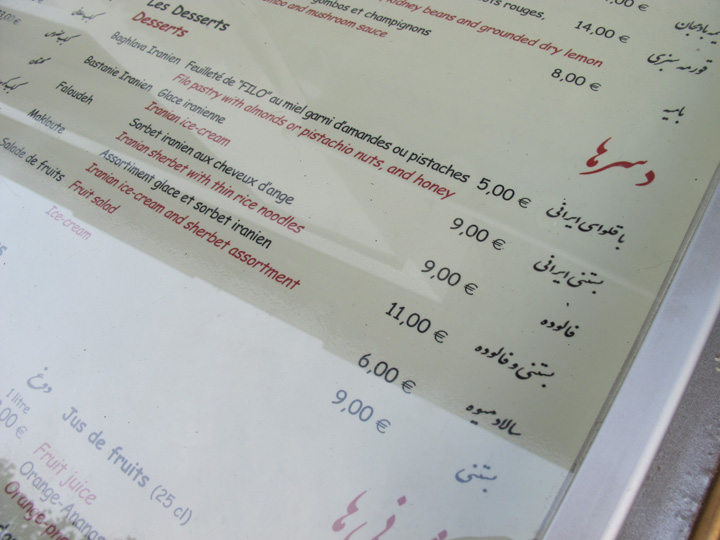 kidney beans and grounded dry lemon
14,00 €
قورمه سبزی
gombos et champignons
and mushroom sauce
8,00 €
بامیه
Les Desserts
Desserts
دسرها
Baghlava Iranien Feuilleté de "FILO" au miel garni d'amandes ou pistaches 5,00 € باقلوای ایرانی
Filo pastry with almonds or pistachio nuts, and honey
Bastanie Iranien Glace iranienne 9,00 € بستنی ایرانی
Iranian ice-cream
Faloudeh Sorbet iranien aux cheveux d'ange 9,00 € فالوده
Iranian sherbet with thin rice noodles
Makloute Assortiment glace et sorbet iranien 11,00 € بستنی و فالوده
Iranian ice-cream and sherbet assortment
Salade de fruits 6,00 € سالاد میوه
Fruit salad
9,00 € بستنی
Ice-cream
دوغ
1 litre
Jus de fruits (25 cl)
Fruit juice
Orange-Ananas